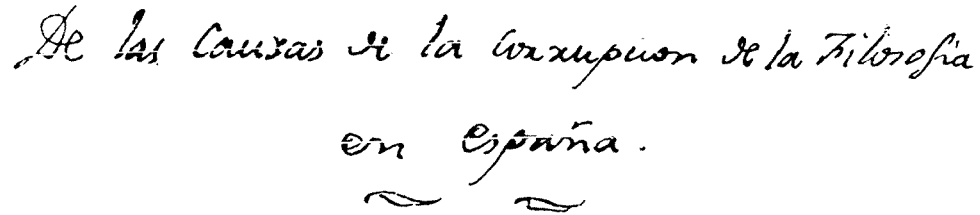 De las Causas de la Corrupcion de la Filosofia
en España.